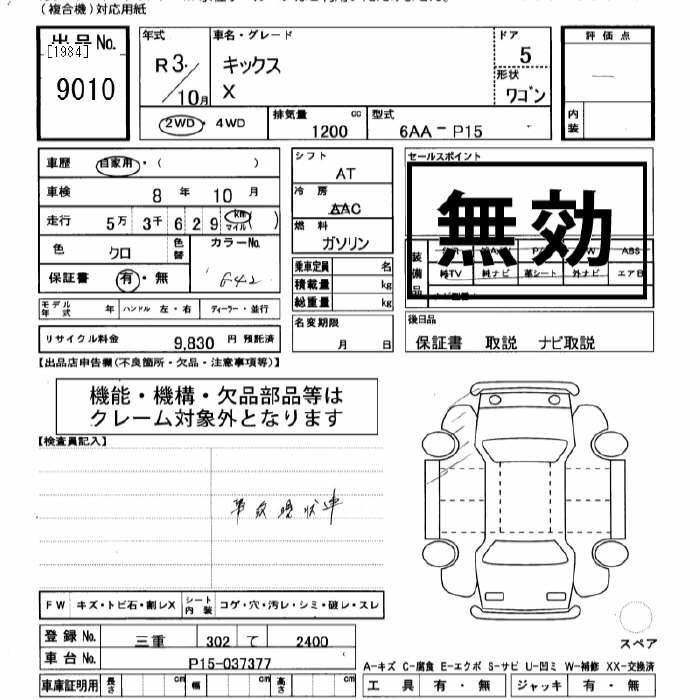 (複合機)対応用紙
出品No.
[1984]
9010
年式
R3/10月
車名・グレード
キックス
X
ドア
5
形状
ワゴン
2WD・4WD
排気量 cc
1200
型式
6AA-P15
評価点
内装
車歴 自家用・( )
車検 8年 10月
走行 5万3千629 km マイル ( )
色 クロ
色替
カラーNo.
G42
保証書 有・無
モデル年式 年 ハンドル 左・右 ディーラー・並行
リサイクル料金 9,830 円 預託済
シフト
AT
冷房
AAC
燃料
ガソリン
乗車定員 名
積載量 kg
総重量 kg
名変期限
月 日
セールスポイント
無効
装備品
ABS
純TV 純ナビ 革シート 外ナビ エアB
後日品
保証書 取説 ナビ取説
【出品店申告欄(不良箇所・欠品・注意事項等)】
機能・機構・欠品部品等は
クレーム対象外となります
【検査員記入】
事故現状車
FW キズ・トビ石・割レX シート内装 コゲ・穴・汚レ・シミ・破レ・スレ
登録No. 三重 302 て 2400
車台No. P15-037377
車庫証明用 長さ cm 幅 cm 高さ cm
スペア
A-キズ C-腐食 E-エクボ S-サビ U-凹ミ W-補修 XX-交換済
工具 有・無 ジャッキ 有・無